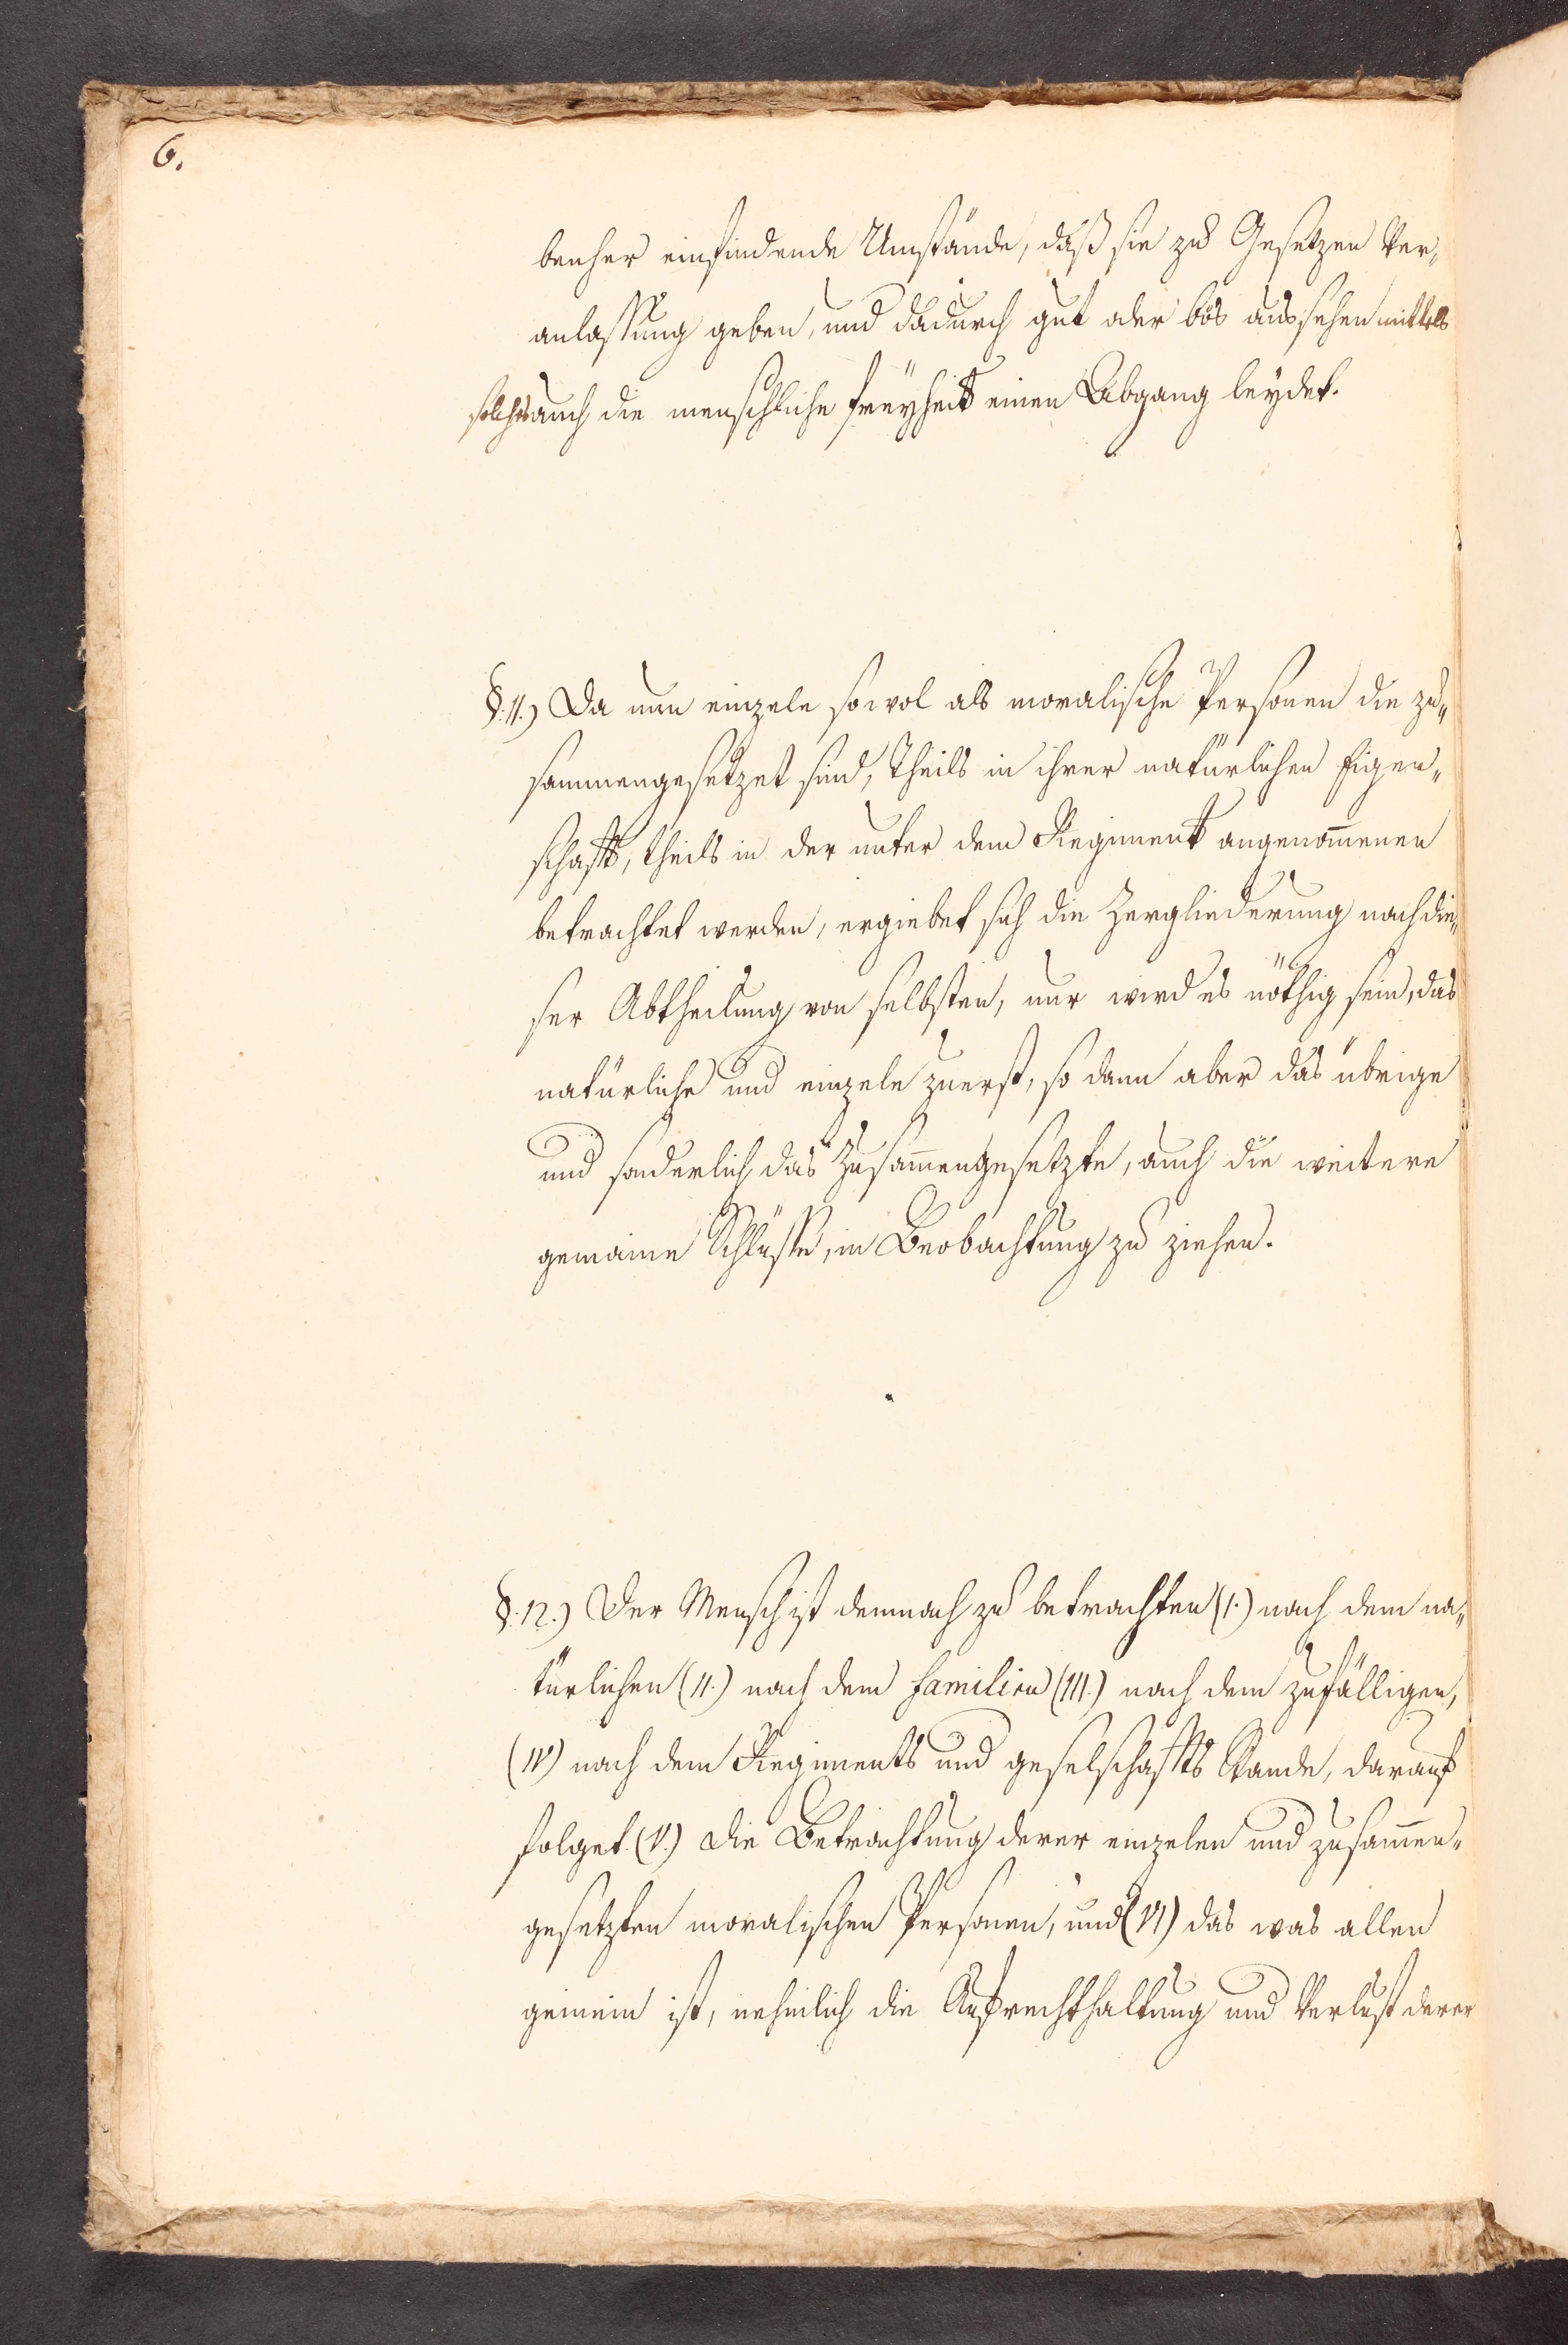 6.
benher einfindende Umstände, daß sie zu Gesetzen Ver„
anlassung geben, und dadurch gut oder bös aussehen mittels
solches auch die menschliche freyheit einen Abgang leydet.
§. 11.) Da nun einzele sowol als moralische Personen die zu„
sammengesetzet sind, theils in ihrer natürlichen Eigen„
schafft, theils in der unter dem Regiment angenom̄enen
betrachtet werden, ergiebet sich die Zergliederung nach die„
ser Abtheilung von selbsten, nur wird es nöthig sein, das
natürliche und einzele zuerst, so dann aber das übrige
und sonderlich das Zusam̄engesetzte, auch die weitere
gemaine Schlüsse, in Beobachtung zu ziehen.
§. 12.) Der Mensch ist demnach zu betrachten (I.) nach dem na„
türlichen (II.) nach dem familien (III.) nach dem zufälligen,
(IV) nach dem Regiments und geselschaffts Stande, darauf
folget. (V.) die Betrachtung derer einzelen und zusam̄en„
gesetzten moralischen Personen, und (VI) das was allen
gemein ist, nehmlich die Aufrechthaltung und Verlust derer